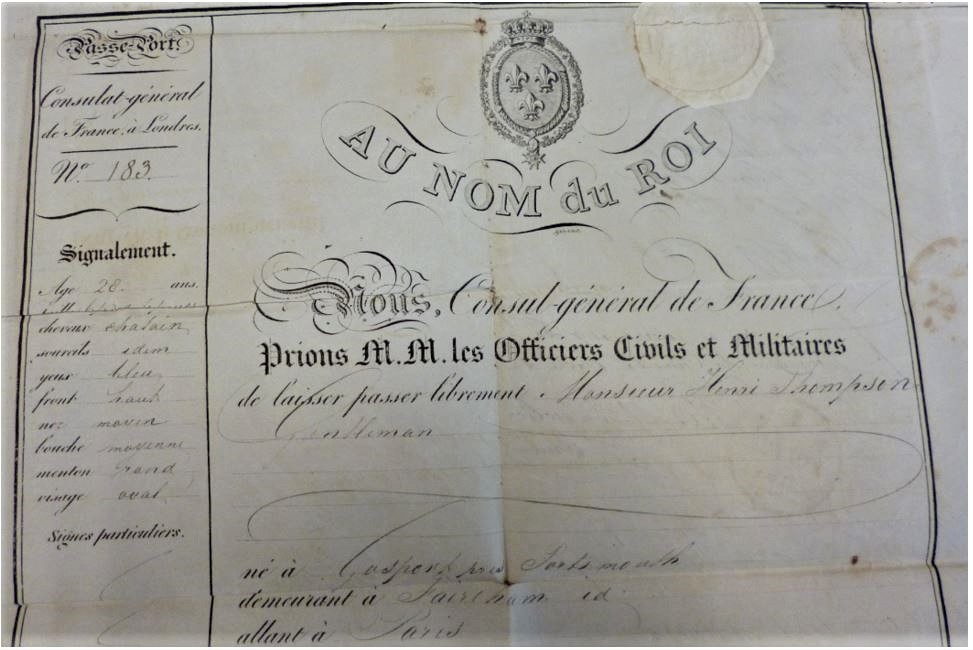 Passe-Port.
Consulat-général
de France, à Londres.
N.º 183.
Signalement.
Age 28 ans.
cheveux chatain
sourcils idem
yeux bleu
front haut
nez moyen
bouche moyenne
menton rond
visage oval
Signes particuliers.
AU NOM du ROI
Nous, Consul-général de France,
Prions M.M. les Officiers Civils et Militaires
de laisser passer librement Monsieur Henri Thompson
Gentleman
né à Gosport près Portsmouth
demeurant à Faireham id
allant à Paris